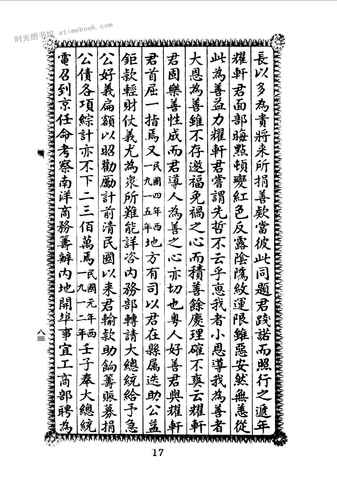 时光图书馆 - etimebook.com
長以多為貴將來所捐善款當彼此同題君踐諾而照行之遞年
耀軒君面部晦點頓變紅色反露陰隲紋運限雖惡安然無恙從
此為善益力耀軒君嘗謂先哲不云乎惠我者小恩導我為善者
大恩為善雖不存邀福免禍之心而積善餘慶理確不爽云耀軒
君固樂善性成而君導人為善之心亦切也粤人好善君與耀軒
君首屈一指焉又民國四年西一九一五年地方有司以君在縣属迭助公益
鉅款輕財仗義尤為衆所難能詳咨内務部轉請大總統給予急
公好義扁額以昭勸勵計前清民國以来君輸款助餉籌賑募捐
公債各項綜計亦不下二三佰萬焉民國元年西一九一二年壬子奉大總統
電召到京任命考察南洋商務籌辦内地開埠事宜工商部聘為
八三
17